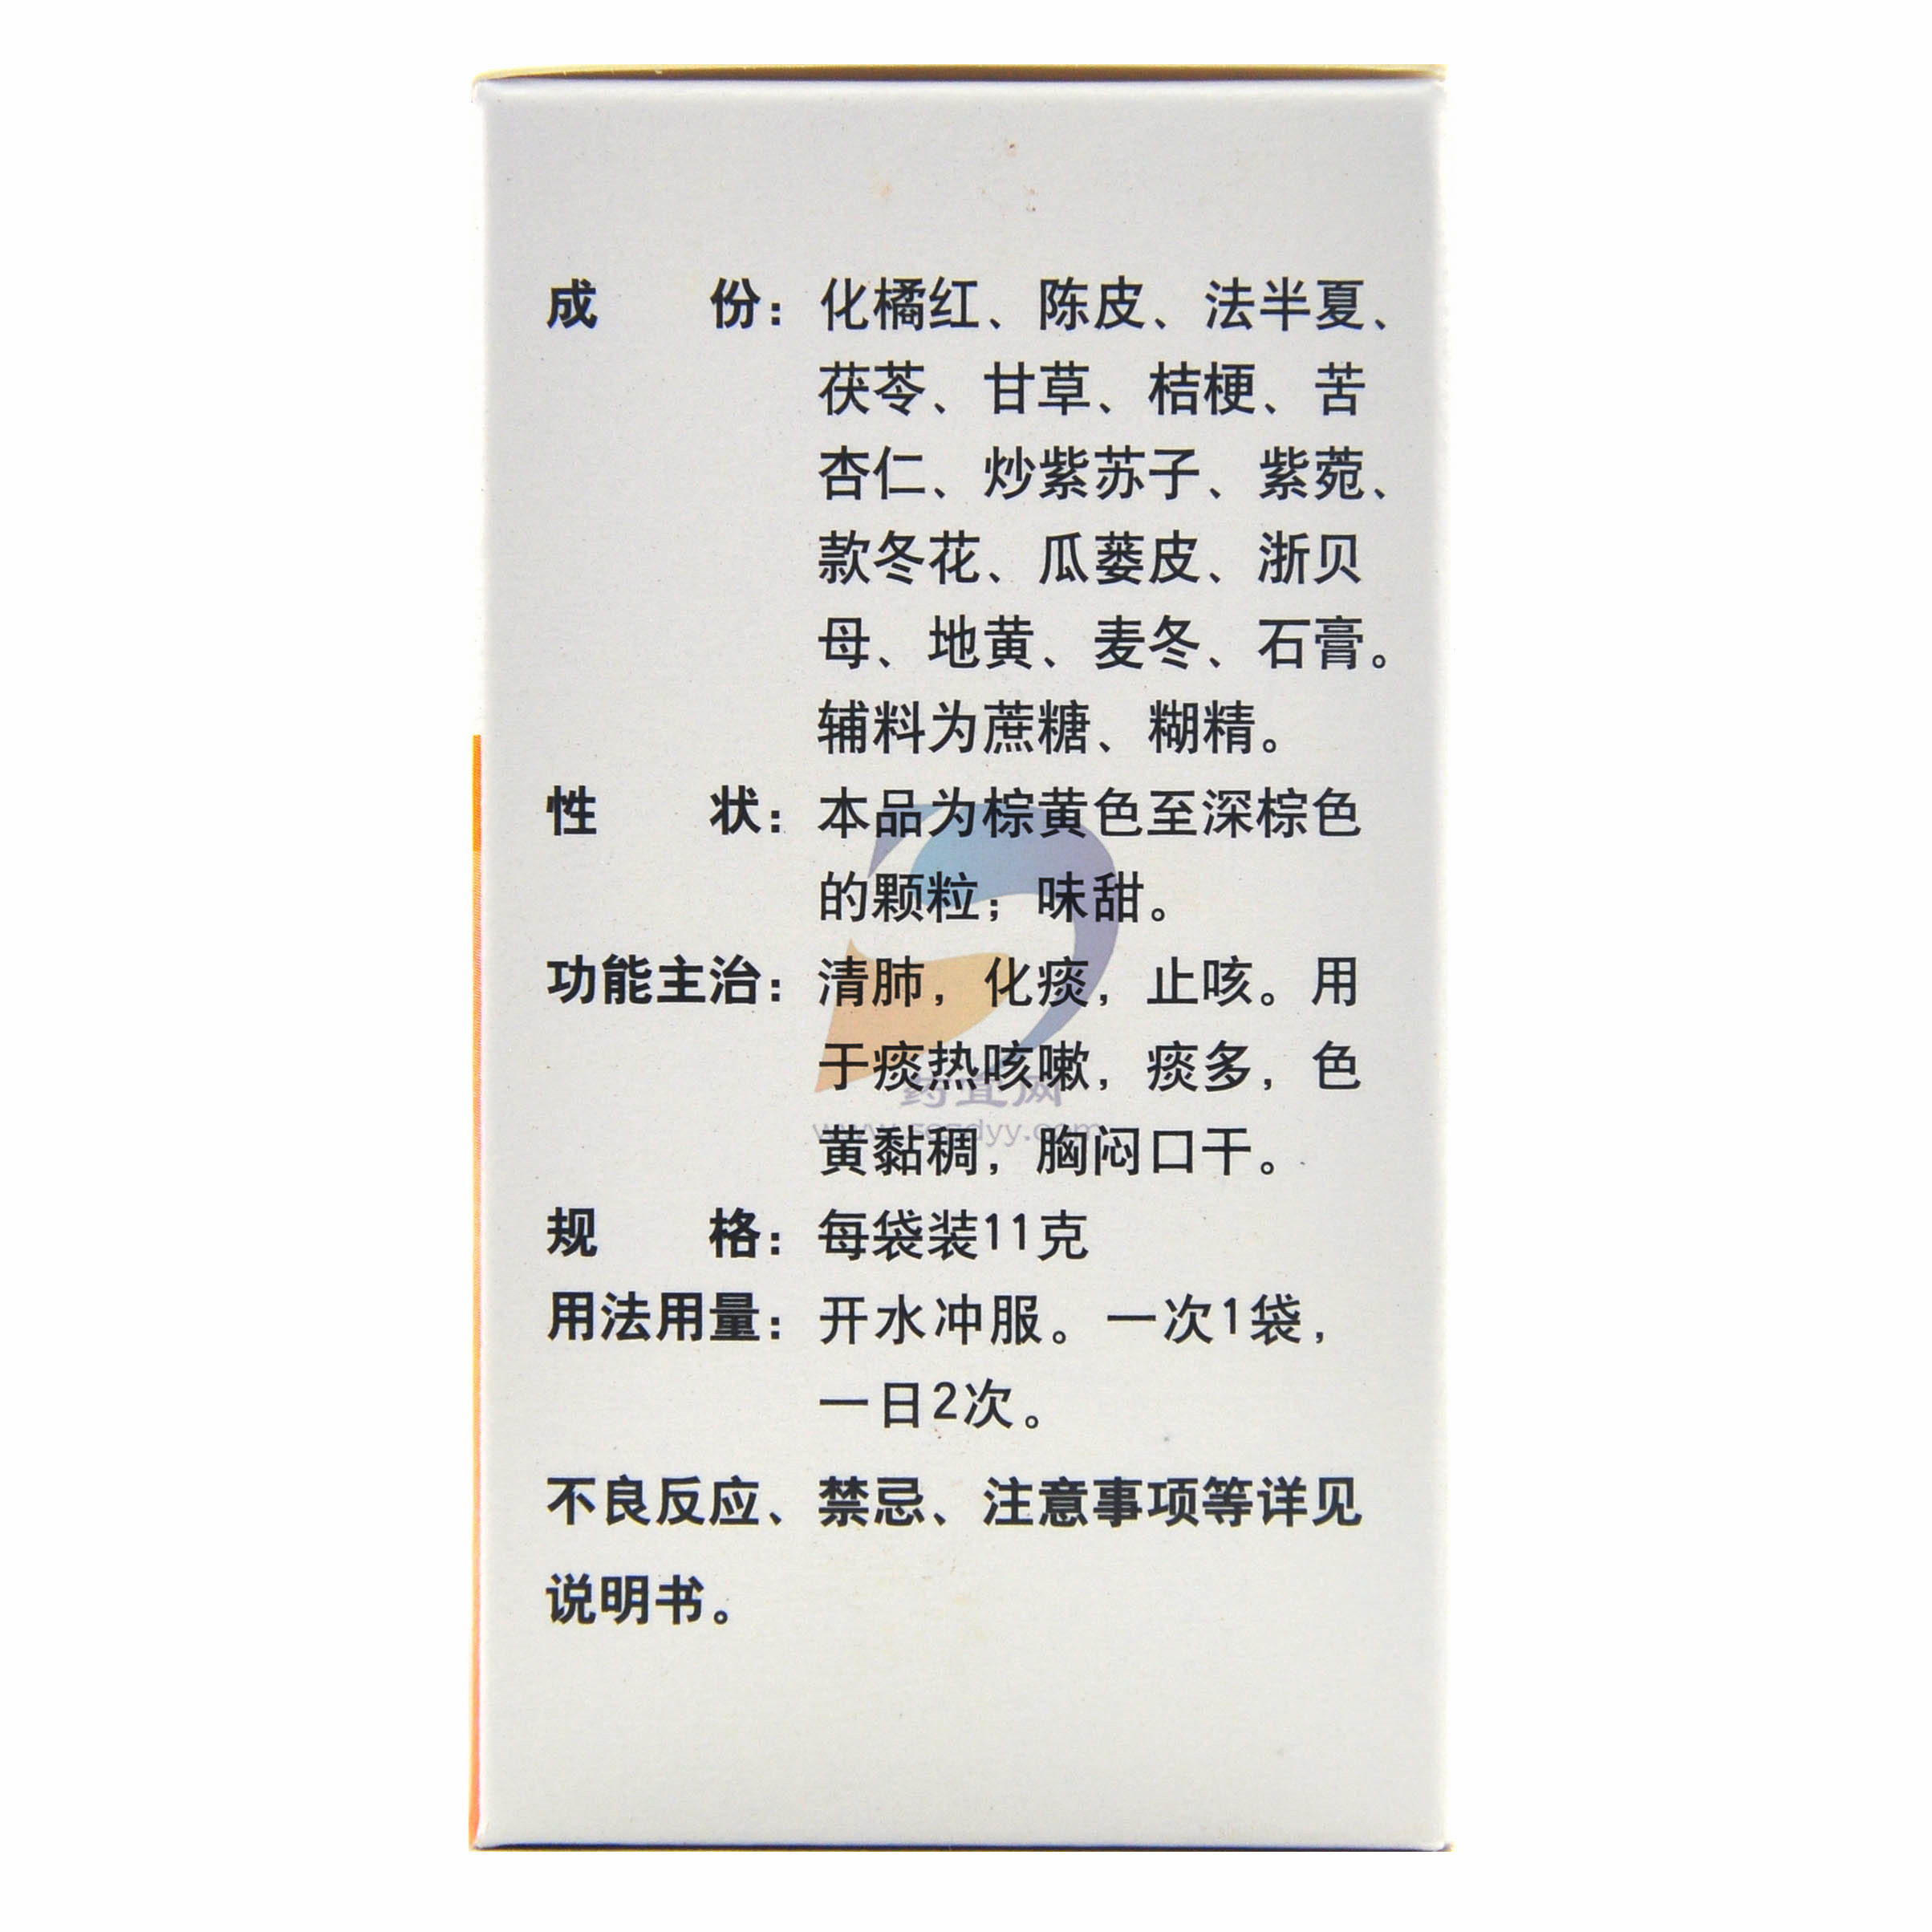 成份：化橘红、陈皮、法半夏、
茯苓、甘草、桔梗、苦
杏仁、炒紫苏子、紫菀、
款冬花、瓜蒌皮、浙贝
母、地黄、麦冬、石膏。
辅料为蔗糖、糊精。
性状：本品为棕黄色至深棕色
的颗粒；味甜。
功能主治：清肺，化痰，止咳。用
于痰热咳嗽，痰多，色
药直网
黄黏稠，胸闷口干。
规格：每袋装11克
用法用量：开水冲服。一次1袋，
一日2次。
不良反应、禁忌、注意事项等详见
说明书。